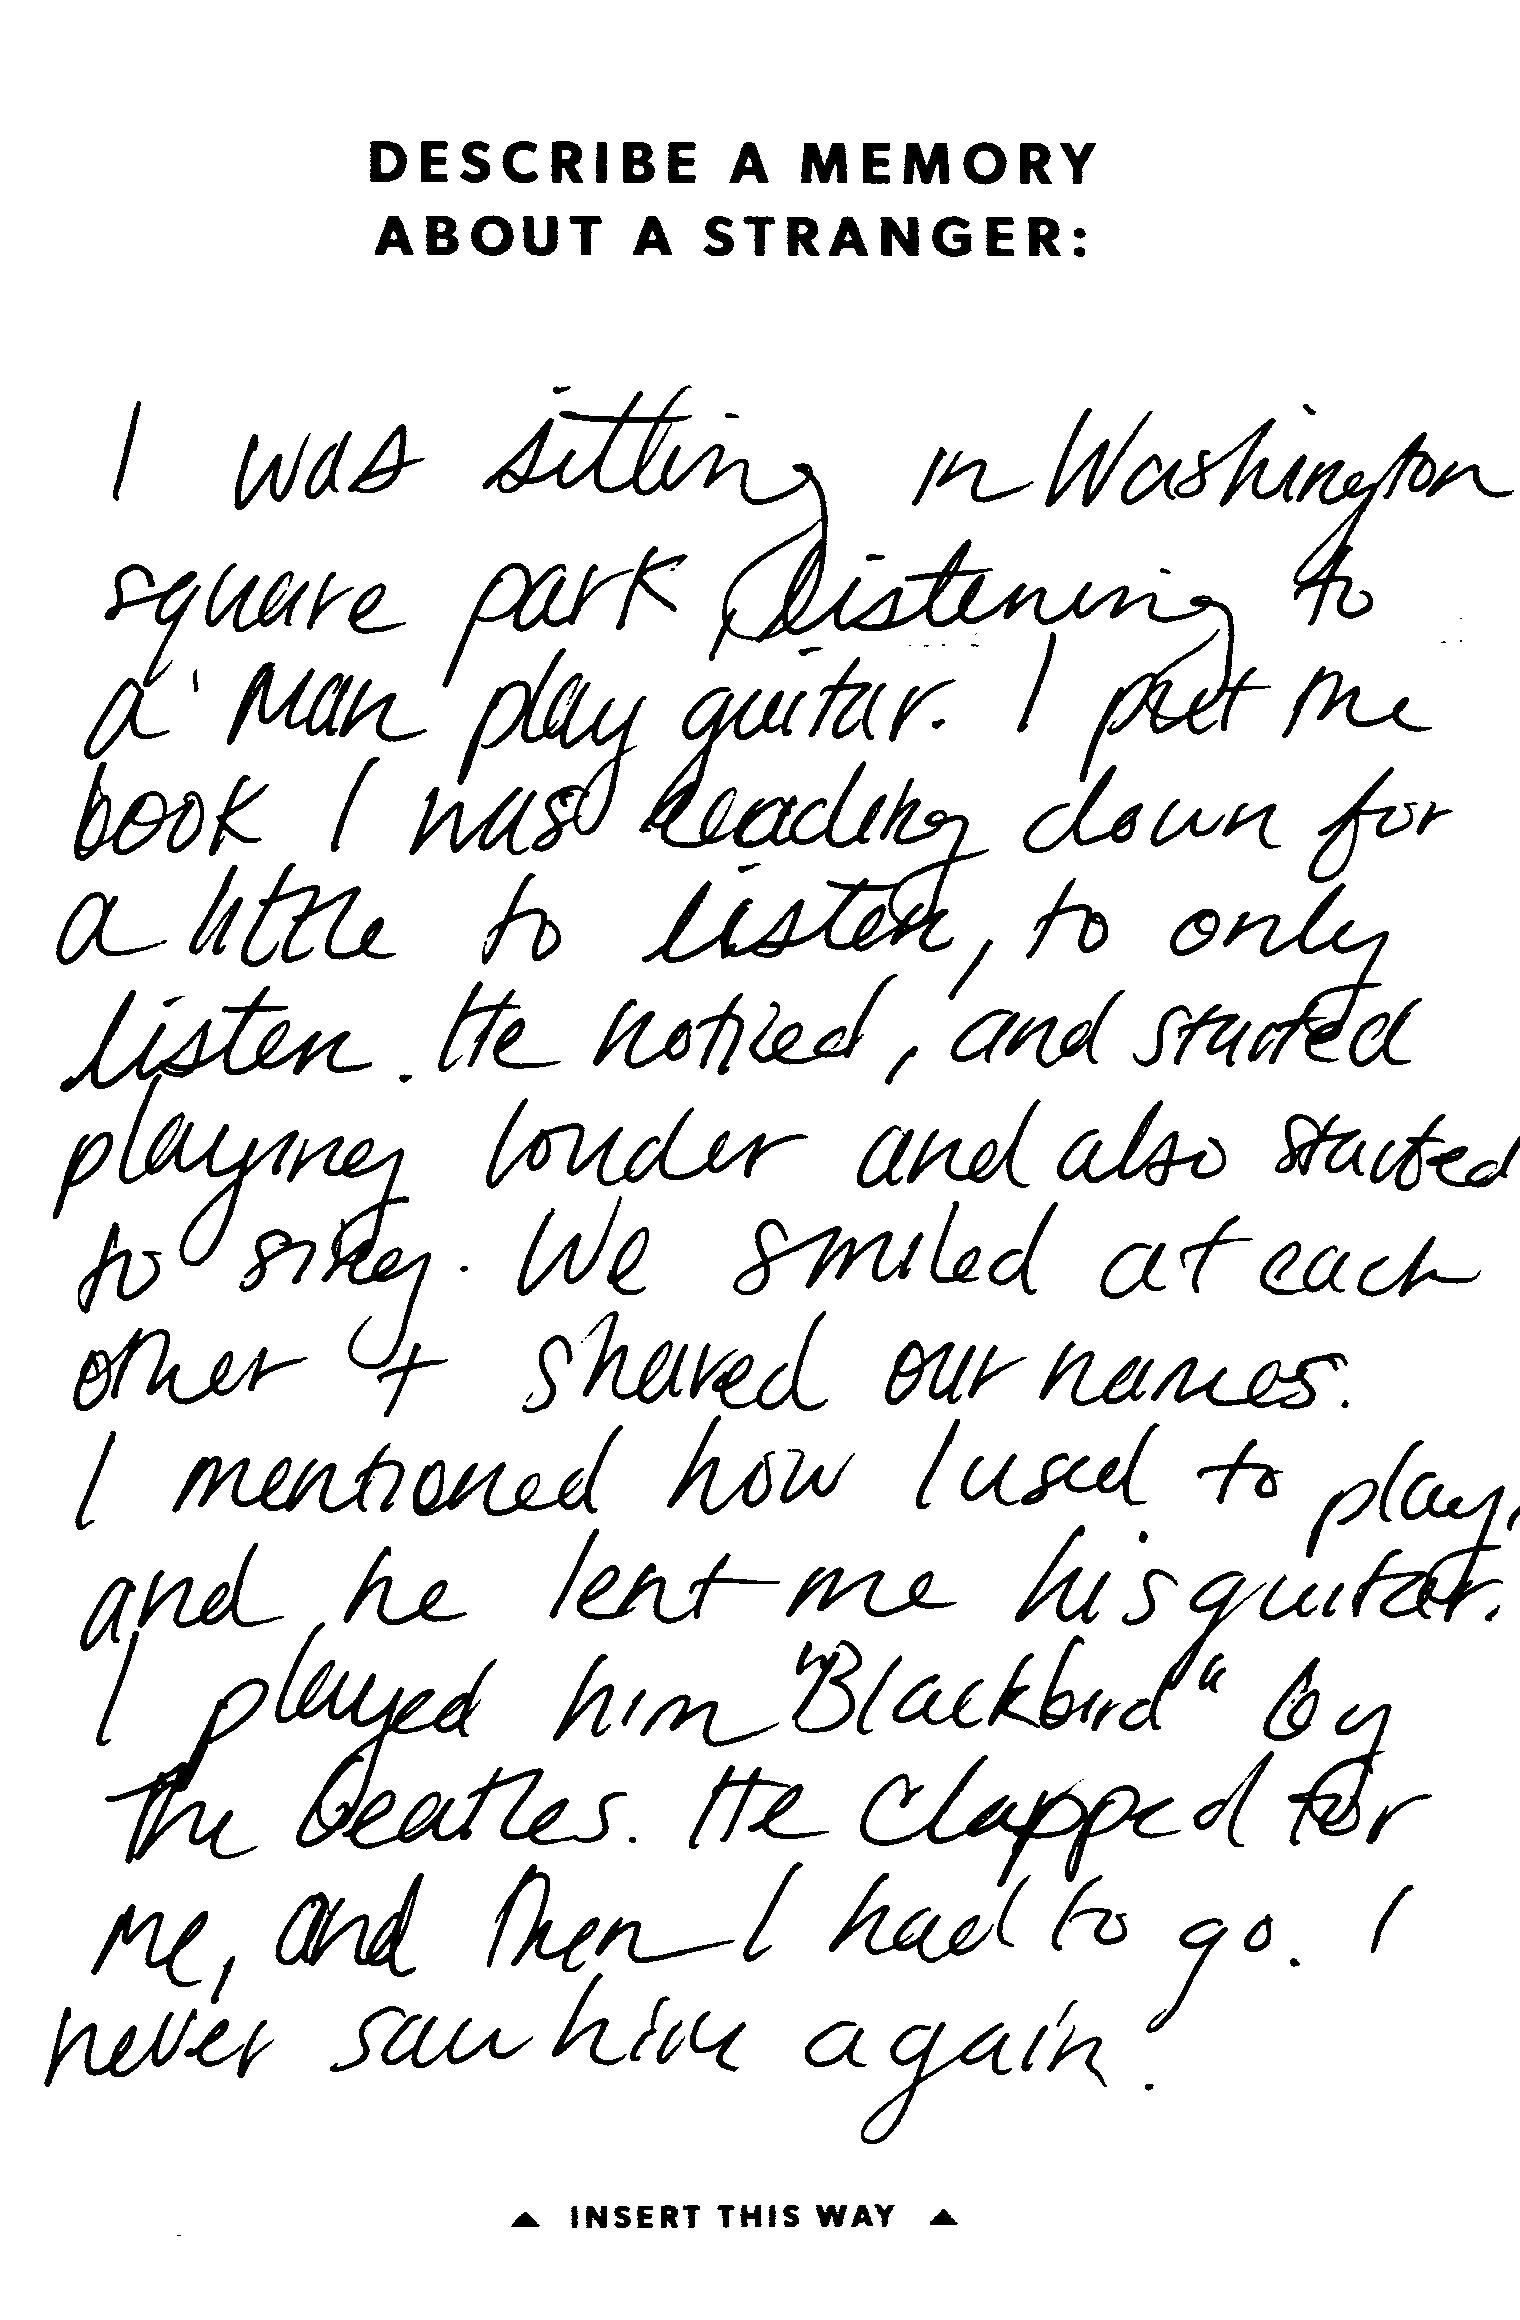 DESCRIBE A MEMORY
ABOUT A STRANGER:
I was sitting in Washington
square park listening to
a man play guitar. I put the
book I was reading down for
a little to listen, to only
listen. He noticed, and started
playing louder and also started
to sing. We smiled at each
other + shared our names.
I mentioned how I used to play,
and he lent me his guitar.
I played him "Blackbird" by
The Beatles. He clapped for
me, and then I had to go. I
never saw him again.
▲ INSERT THIS WAY ▲